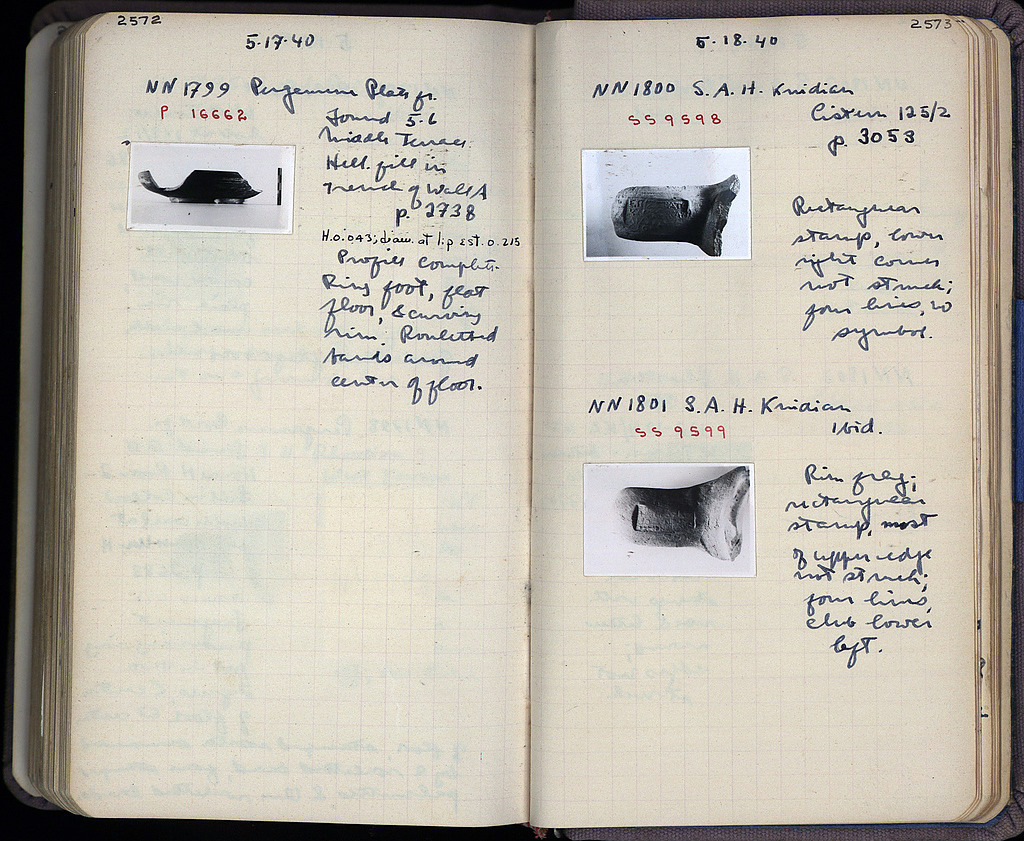 2572
5·17·40
NN 1799 Pergamene Plate fr.
P 16662
Found 5·6
Middle Terrace
Hell. fill in
trench of Wall A
p. 2738
H. 0.043; diam. at lip est. 0.215
Profile complete.
Ring foot, flat
floor, & curving
rim. Rouletted
bands around
center of floor.
2573
5·18·40
NN 1800 S.A.H. Knidian
SS 9598
Cistern 125/2
p. 3053
Rectangular
stamp, lower
right corner
not struck;
four lines, no
symbol.
NN 1801 S.A.H. Knidian
SS 9599
Ibid.
Rim frag;
rectangular
stamp, most
of upper edge
not struck;
four lines,
club lower
left.